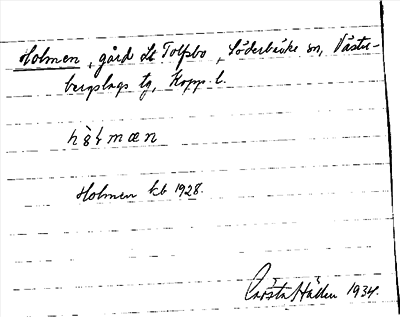 Holmen, gård Lt Tolfsbo, Söderbärke sn, Väster-
bergslags tg, Kopp. l.
hò̤ɫmæn
Holmen kb 1928.
Hällen 1934.